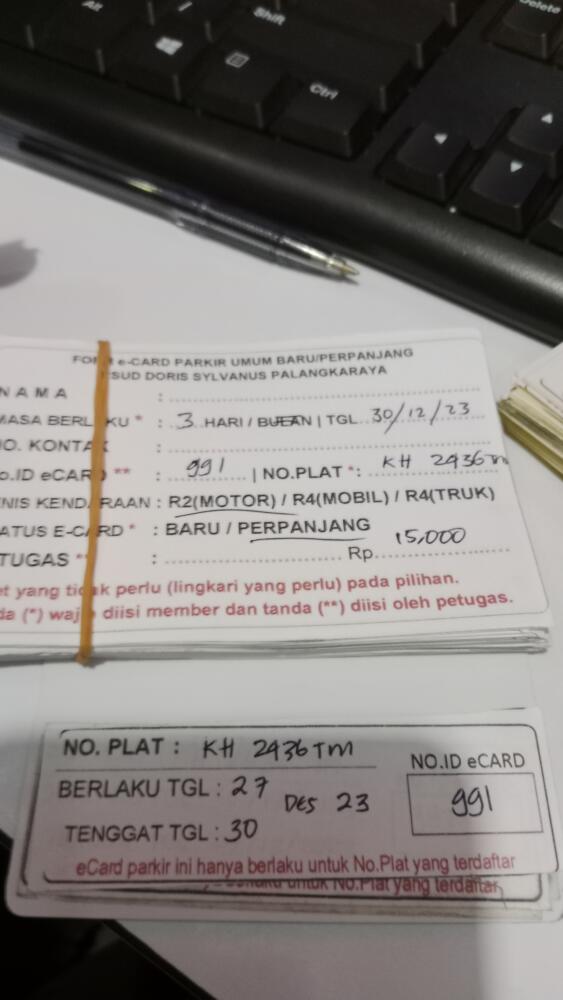 Alt
/
Shift
Ctrl
Delete
FORM e-CARD PARKIR UMUM BARU/PERPANJANG
RSUD DORIS SYLVANUS PALANGKARAYA
NAMA :
MASA BERLAKU * : 3 HARI / BULAN | TGL. 30/12/23
NO. KONTAK :
No.ID eCARD ** : 991 | NO.PLAT *: KH 2436TM
JENIS KENDARAAN : R2(MOTOR) / R4(MOBIL) / R4(TRUK)
STATUS E-CARD * : BARU / PERPANJANG
PETUGAS ** : Rp. 15,000
yang tidak perlu (lingkari yang perlu) pada pilihan.
(*) wajib diisi member dan tanda (**) diisi oleh petugas.
NO. PLAT : KH 2436TM
NO.ID eCARD
BERLAKU TGL : 27 DES 23
991
TENGGAT TGL : 30
eCard parkir ini hanya berlaku untuk No.Plat yang terdaftar
berlaku untuk No.Plat yang terdaftar